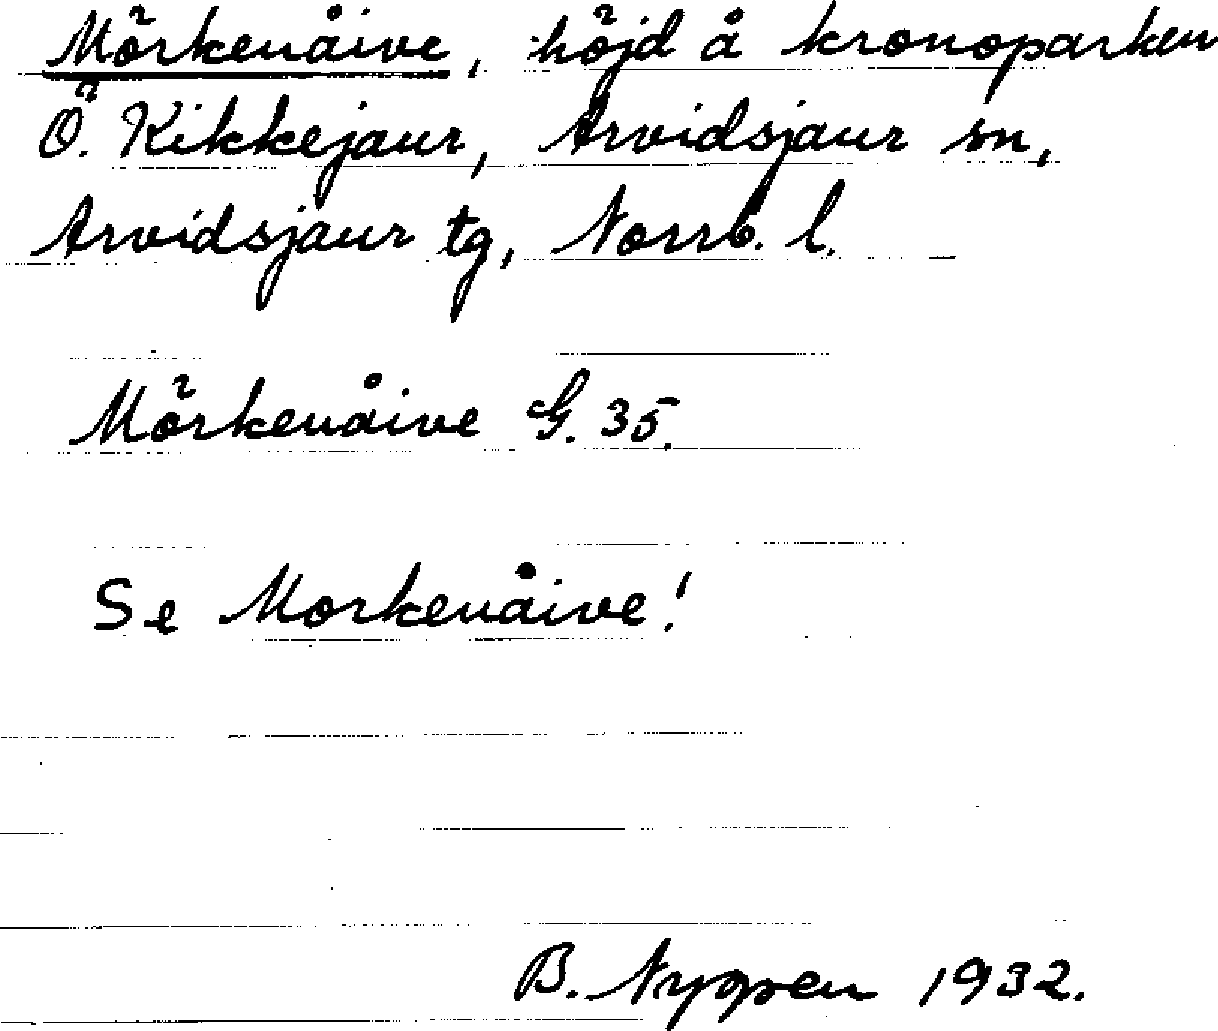 Mörkenåive, höjd å kronoparken
Ö. Kikkejaur, Arvidsjaur sn,
Arvidsjaur tg, Norrb. l.
Mörkenåive G. 35.
Se Morkenåive!
B. 1932.